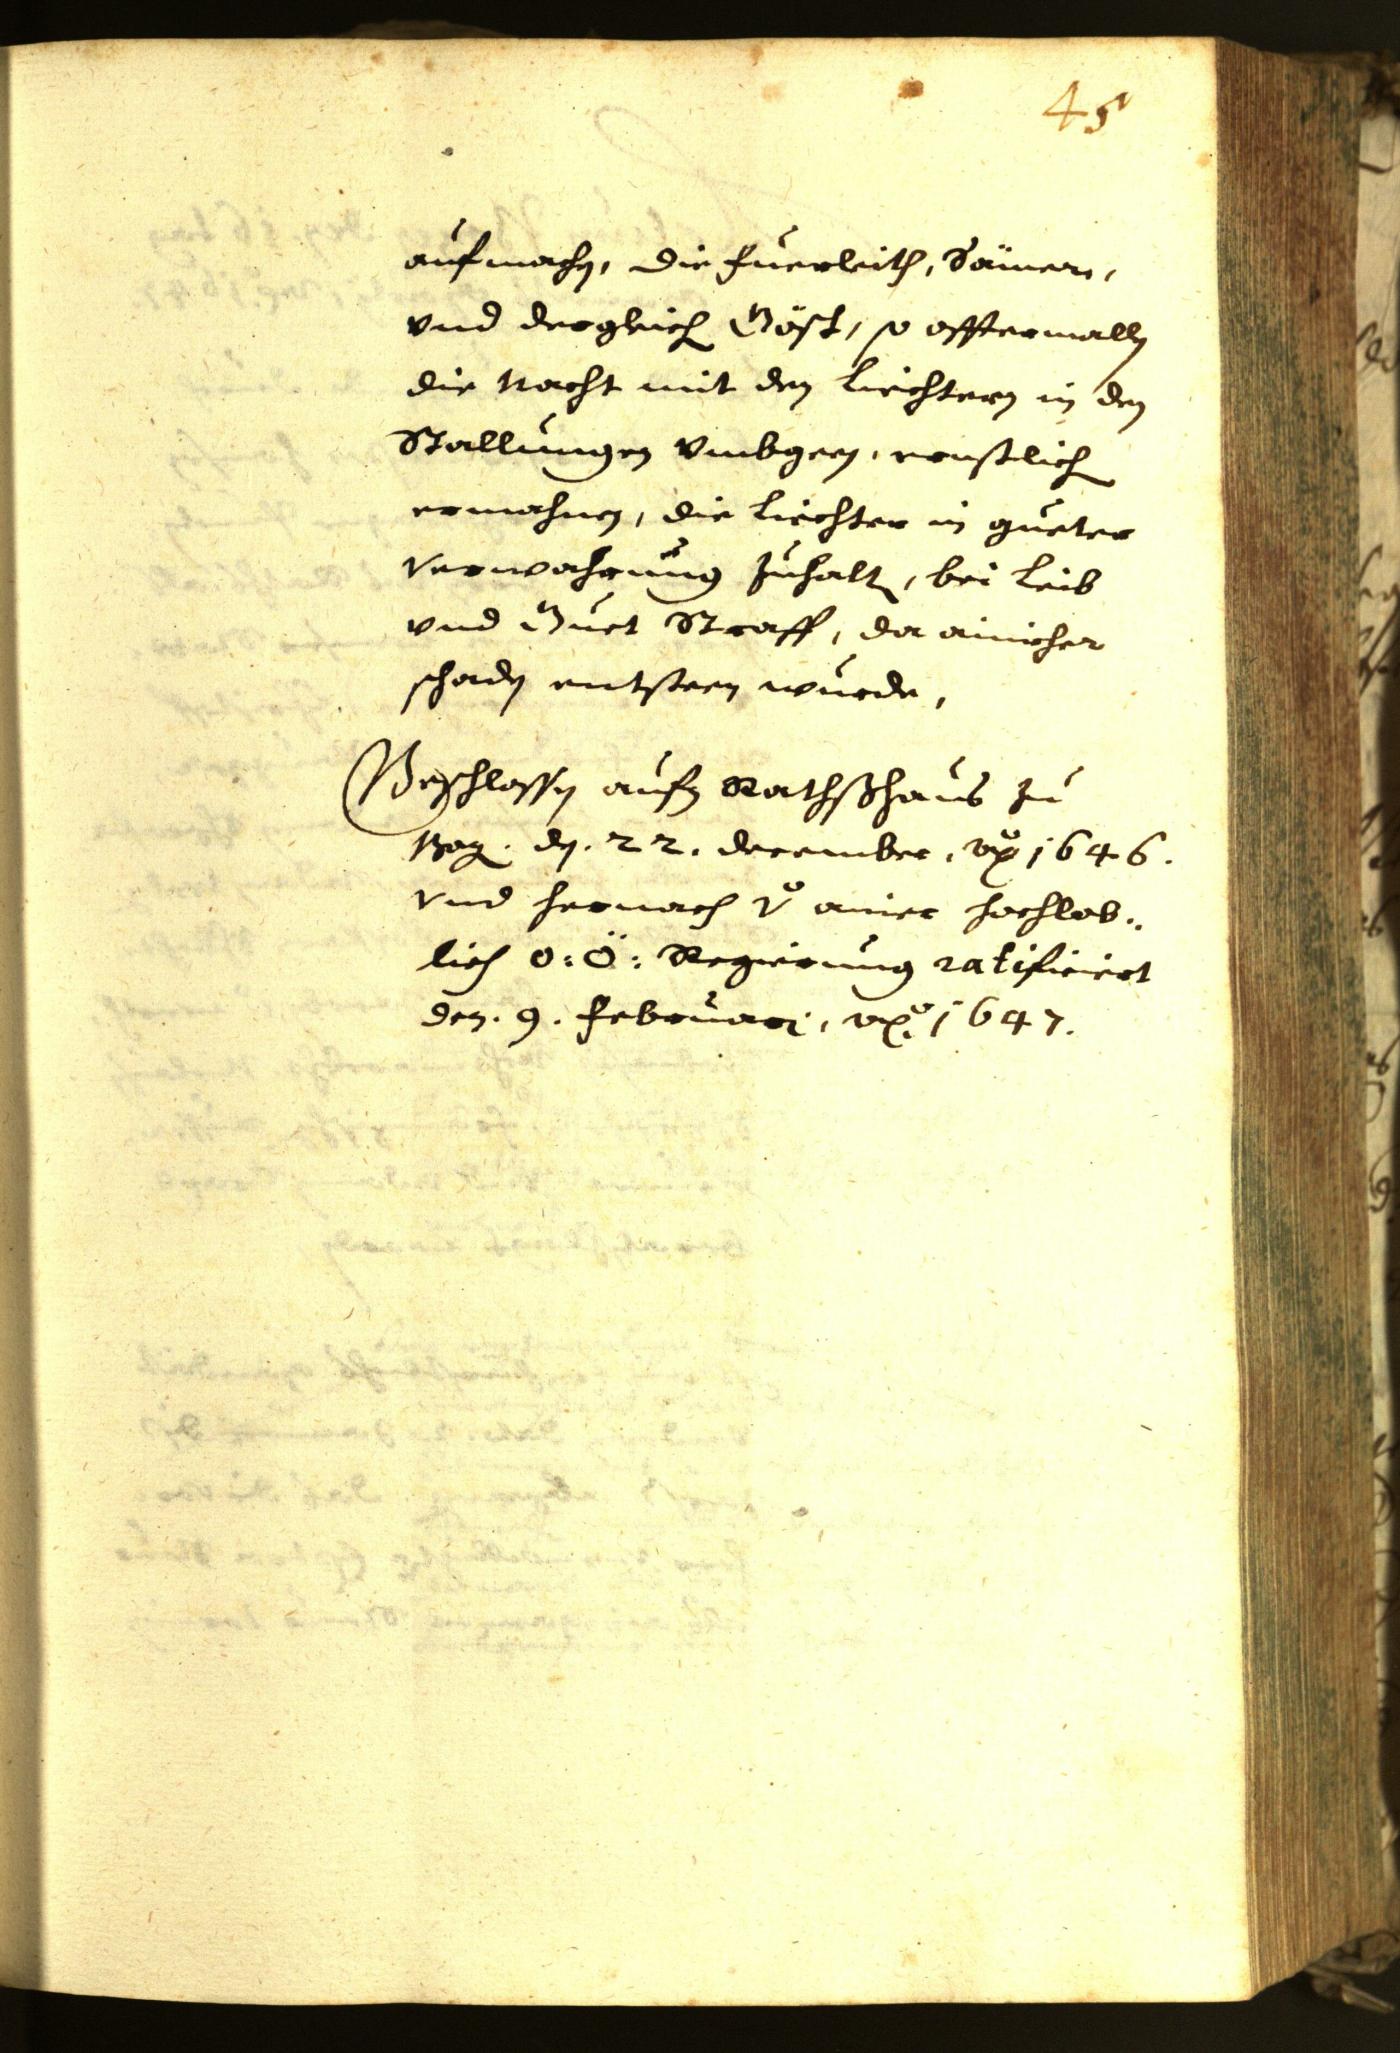 45
aufmachen, die Fuerleith, Sämer,
vnd dergleich Göst, so offtermalln
die Nacht mit den Liechtern in den
Stallungen vmbgeen, ernstlich
ermahnen, die Liechter in gueter
verwahrung zuhalten, bei Leib
vnd Guet Straff, da ainicher
schaden entsteen wurde,
Beschlossen aufm Rathßhaus zu
Bozen. den. 22. december, 1646.
vnd hernach von ainer hochlob¬
lich O: Ö: Regierung ratificiert
den. 9. Februari, 1647.